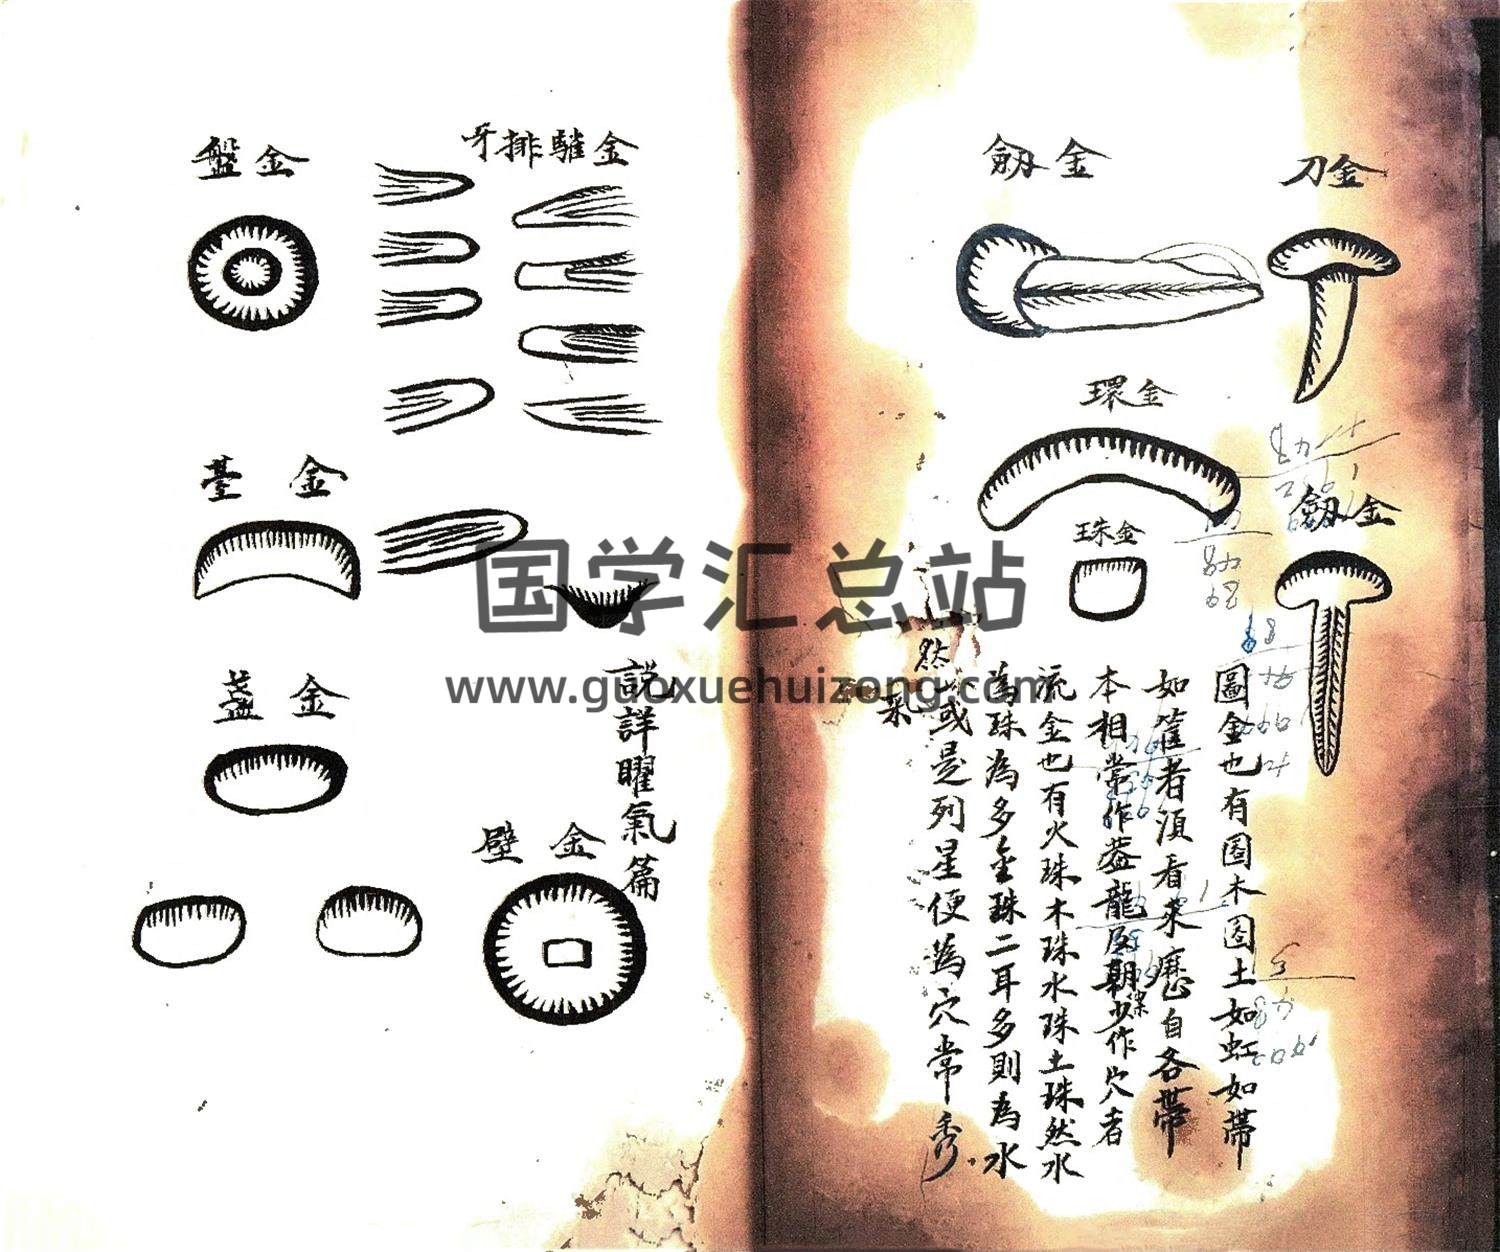 金刀
金劔
金環
金珠
金劔
圖金也有圖木圖土如虹如帶
如篚者湏看来歷自各帶
本相常作盖龍反朝少作穴者
流金也有火珠木珠水珠土珠然水
為珠為多金珠二耳多則為水
然或是列星便為穴常秀
金騅排牙
金盤
金臺
金盞
金壁
説詳曜氣篇
国学汇总站
www.guoxuehuizong.com